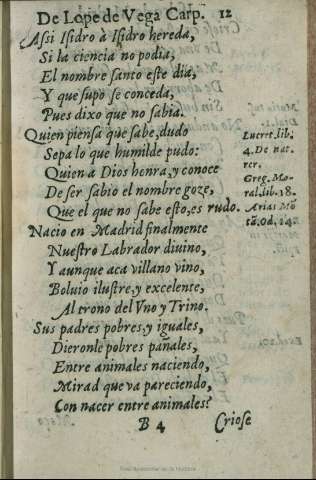 De Lope de Vega Carp. 12
Assi Isidro à Isidro hereda,
Si la ciencia no podia,
El nombre santo este dia,
Y que supo se conceda,
Pues dixo que no sabia.
Quien piensa que sabe, dudo
Sepa lo que humilde pudo:
Quien a Dios henra, y conoce
De ser sabio el nombre goze,
Que el que no sabe esto, es rudo.
Lucret. lib.
4. De nat.
rer.
Greg. Mo-
ral. lib. 18.
Arias Mõ
tã. Od. 14.
Nacio en Madrid finalmente
Nuestro Labrador diuino,
Y aunque aca villano vino,
Boluio ilustre, y excelente,
Al trono del Vno y Trino.
Sus padres pobres, y iguales,
Dieronle pobres pañales,
Entre animales naciendo,
Mirad que va pareciendo,
Con nacer entre animales?
B 4
Criose